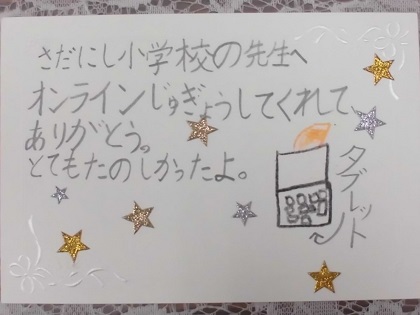 さだにし小学校の先生へ
オンラインじゅぎょうしてくれて、
ありがとう。
とてもたのしかったよ。
タブレット